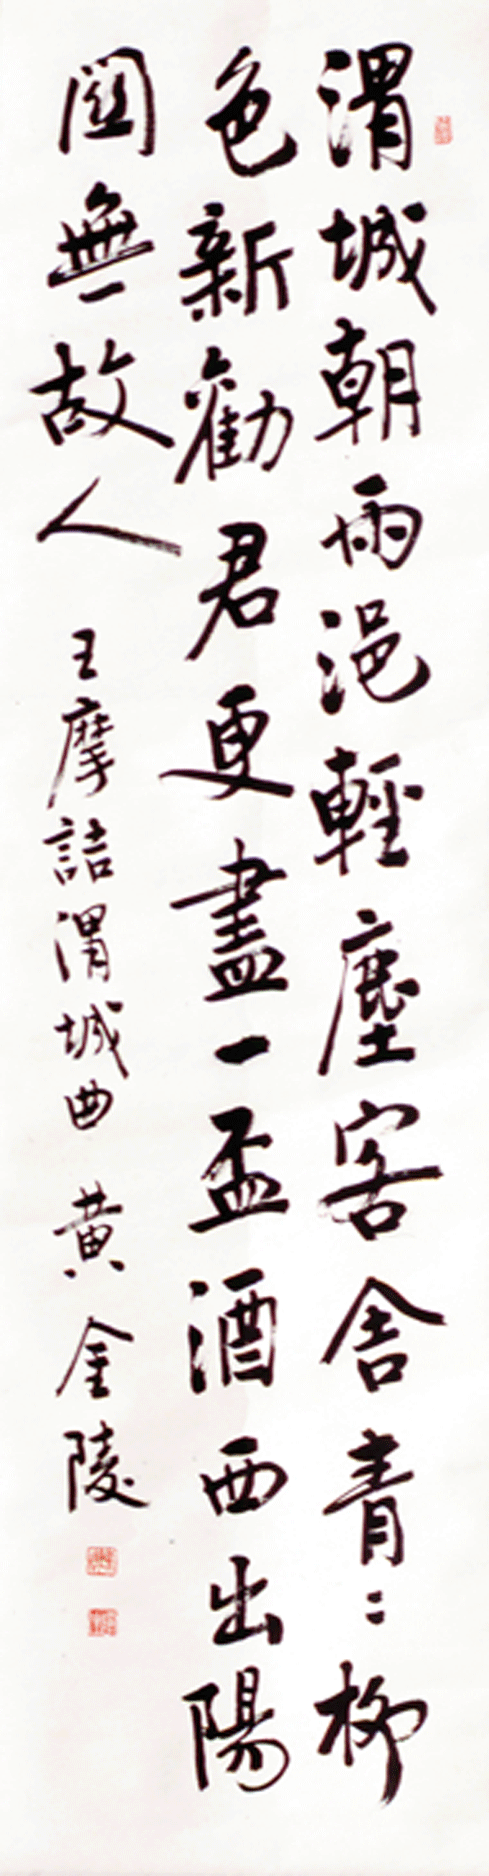 渭城朝雨浥輕塵客舍青〻柳
色新勸君更盡一盃酒西出陽
關無故人 王摩詰渭城曲 黃金陵